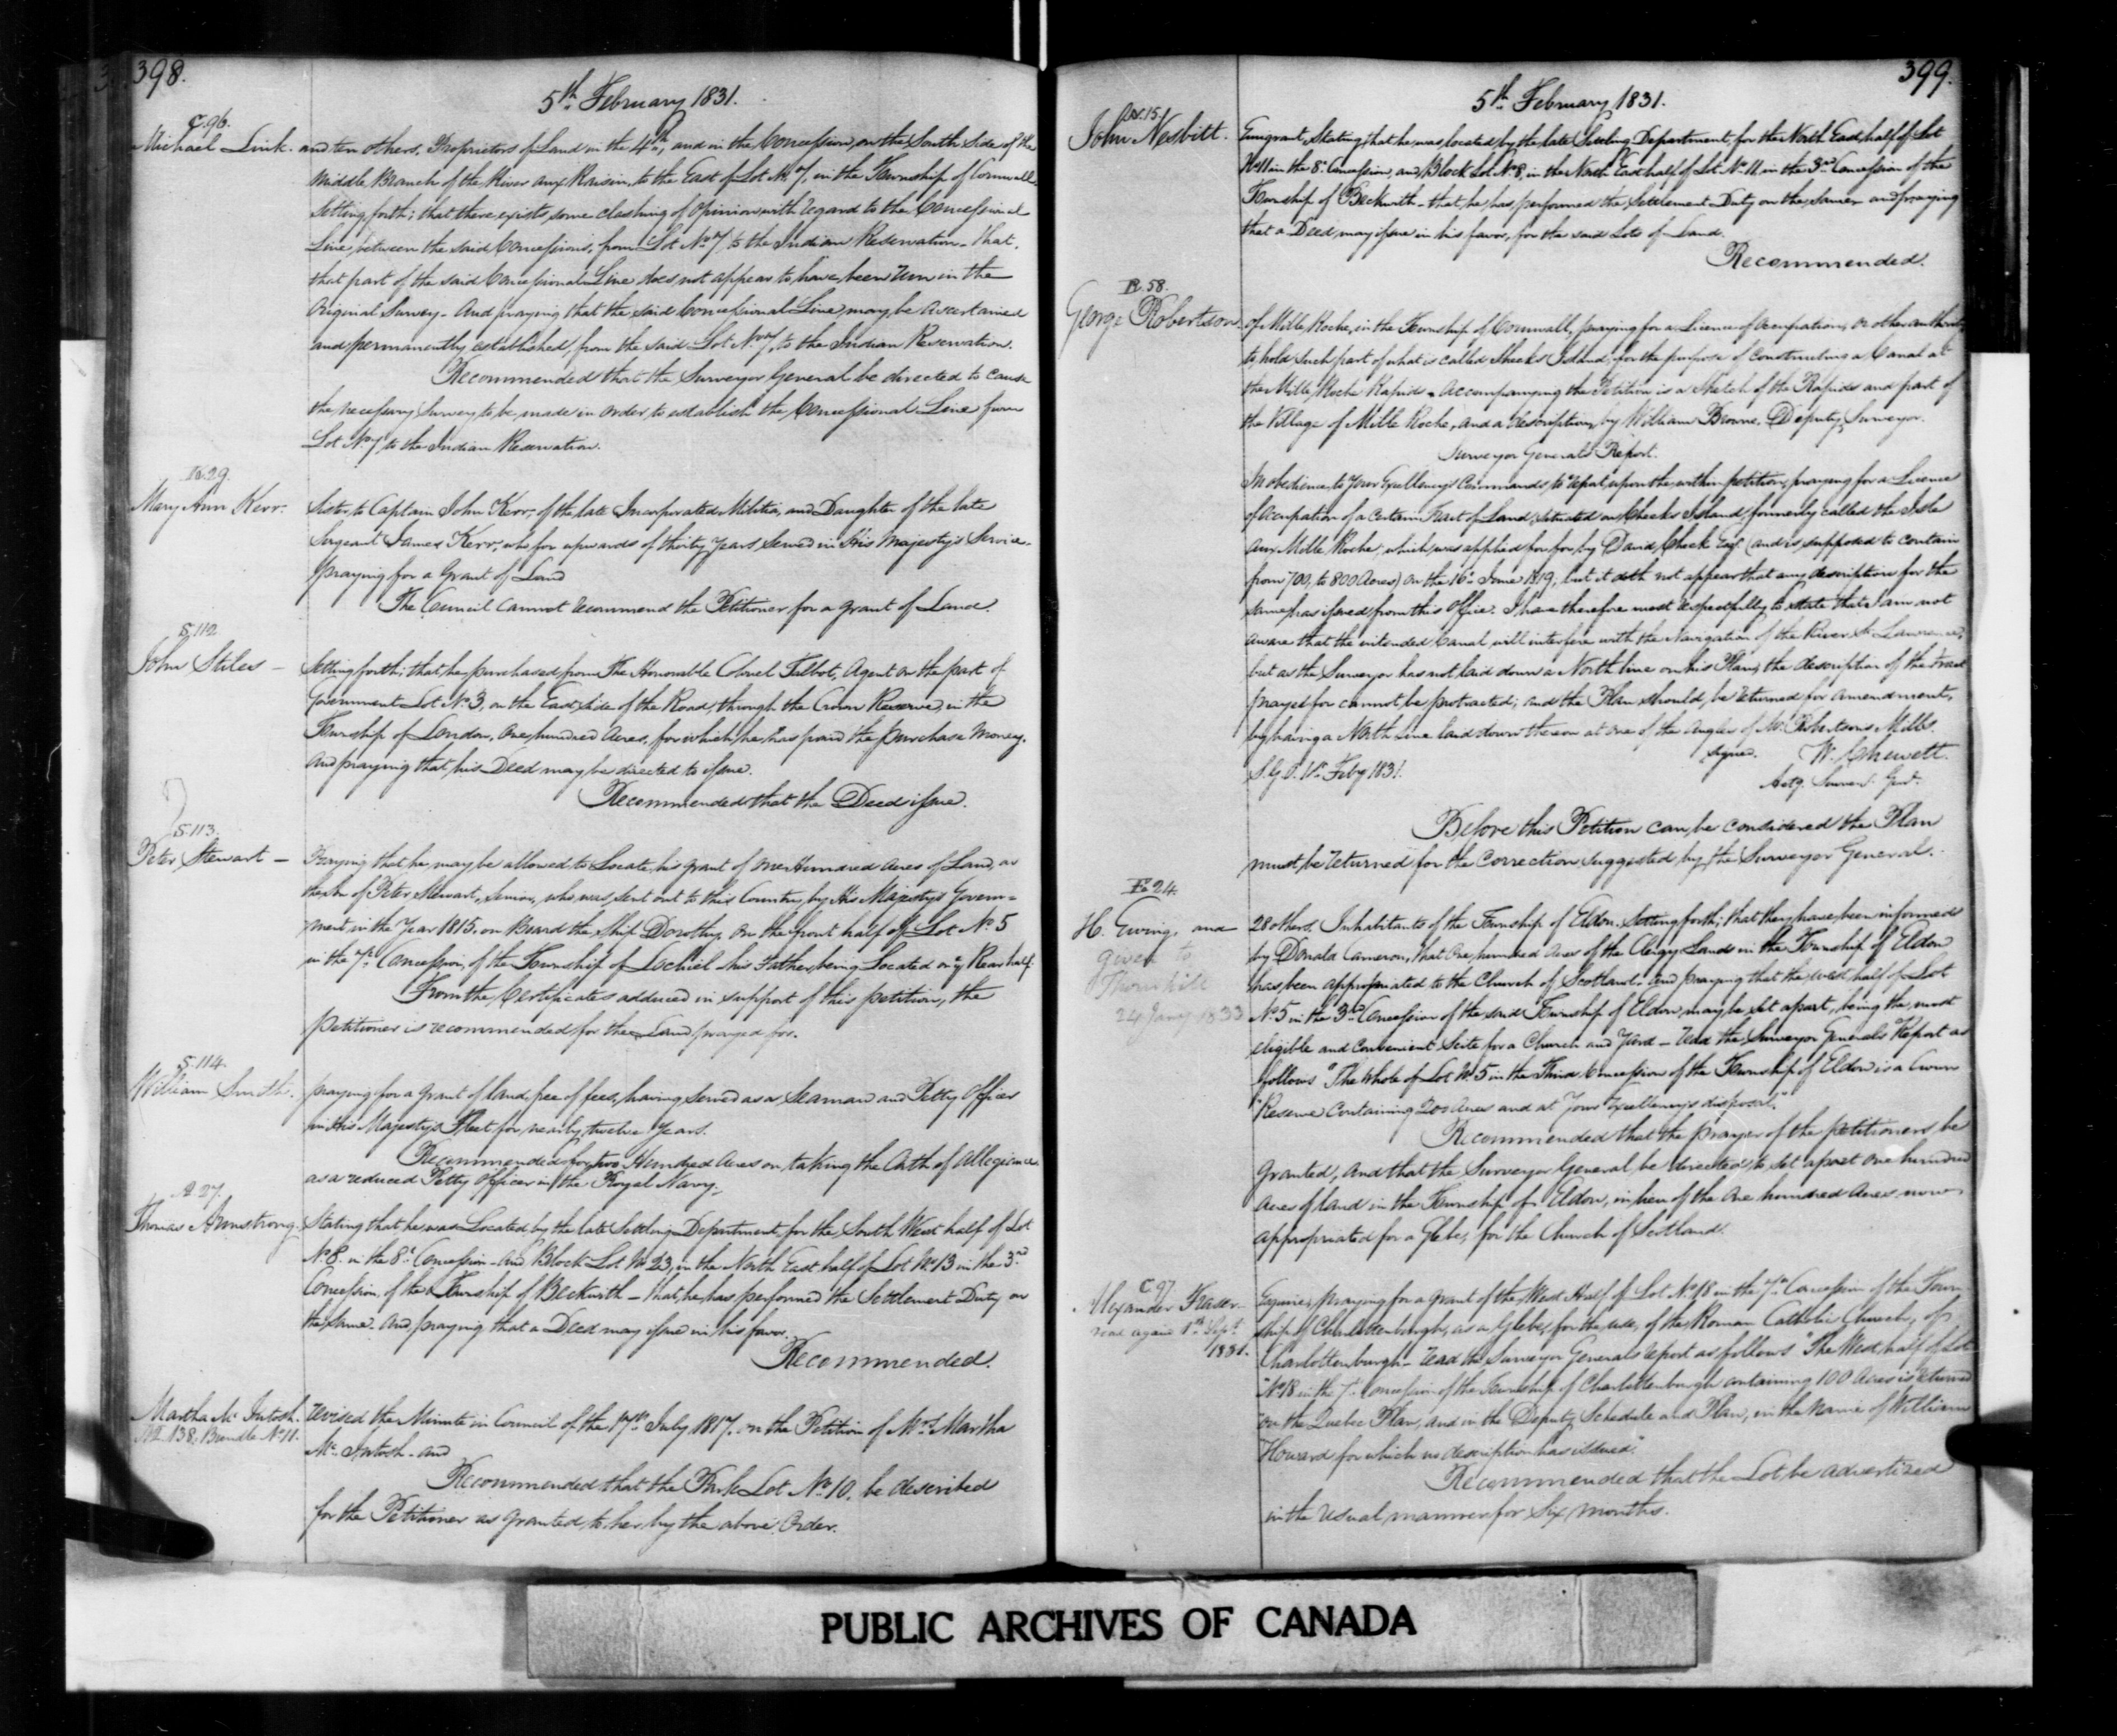 398.
5th February 1831.
C. 96.
Michael Link. and ten others. Proprietors of Land in the 4th, and in the Concession, on the South side of the
Middle Branch of the River aux Raisin, to the East of Lot No. 7, in the Township of Cornwall
Setting forth; that there exists some clashing of Opinion with regard to the Concessional
Line, between the said Concessions, from Lot No. 7 to the Indian Reservation - that
that part of the said Concessional Line does not appear to have been run in the
Original Survey - And praying that the said Concessional Line may be ascertained
and permanently established, from the said Lot No. 7, to the Indian Reservation.
Recommended that the Surveyor General be directed to cause
the necessary Survey to be made in order to establish the Concessional Line from
Lot No. 7 to the Indian Reservation.
K. 29.
Mary Ann Kerr. Sister to Captain John Kerr, of the late Incorporated Militia, and Daughter of the late
Sergeant James Kerr, who for upwards of thirty Years served in His Majesty's Service.
praying for a Grant of Land
The Council cannot recommend the Petitioner for a grant of Land.
S. 112
John Stiles - Setting forth; that he purchased from The Honorable Colonel Talbot, Agent on the part of
Government Lot No. 3, on the East side of the Road, through the Crown Reserve, in the
Township of London, One hundred Acres, for which he has paid the purchase money.
And praying that his Deed may be directed to issue.
Recommended that the Deed issue.
S. 113.
Peter Stewart - Praying that he may be allowed to Locate his grant of One Hundred Acres of Land, as
the son of Peter Stewart, Senior, who was sent out to this Country by His Majesty's Govern=
ment in the Year 1815, on Board the Ship Dorothy, on the front half of Lot No. 5
in the 7th Concession, of the Township of Lochiel his Father being Located on ye Rear half.
From the Certificates adduced in support of this petition, the
Petitioner is recommended for the Land prayed for.
S. 114.
William Smith. praying for a Grant of land, free of fees, having served as a Seaman and Petty Officer
in His Majesty's Fleet for nearly twelve Years.
Recommended for two Hundred Acres on taking the Oath of Allegiance
as a reduced Petty Officer in the Royal Navy.
A. 27.
Thomas Armstrong Stating that he was Located by the late Settling Department, for the South West half of Lot
No. 8. in the 8th Concession - And Block Lot No. 23, in the North East half of Lot No. 13 in the 3rd
Concession, of the Township of Beckwith - that he has performed the Settlement Duty on
the same. And praying that a Deed may issue in his favor.
Recommended.
Martha Mc Intosh. revised the Minute in Council of the 17th July 1817. on the Petition of Mrs. Martha
M 138, Bundle No. 11. Mc. Intosh. and
Recommended that the Park Lot No. 10. be described
for the Petitioner as granted to her by the above Order.
399.
5th February 1831.
N. 15.
John Nesbitt. Emigrant, Stating that he was located by the late Settling Department, for the North East half of Lot
No. 11 in the 8th Concession, and Block Lot No. 8, in the North East half of Lot No. 11, in the 3rd Concession of the
Township of Beckwith - that he has performed the Settlement Duty on the same - and praying
that a Deed may issue in his favor, for the said Lots of Land.
Recommended.
R. 58.
George Robertson. of Mille Roche, in the Township of Cornwall, praying for a Licence of Occupation, or other authority
to hold such part of what is called Sheeks Island, for the purpose of constructing a Canal at
the Mille Roche Rapids - Accompanying the Petition is a Sketch of the Rapids and part of
the Village of Mille Roche, and a description, by William Browne, Deputy Surveyor.
Surveyor General's Report.
In obedience to Your Excellency's Commands, to report upon the within petition, praying for a Licence
of Occupation of a Certain Tract of Land, situated on Sheeks Island, formerly called the Isle
aux Mille Roche, which was applied for, for by David Sheek Esqr. (and is supposed to contain
from 700, to 800 Acres) on the 16th June 1819, but it doth not appear that any description for the
same has issued from this Office. I have therefore most respectfully to state that I am not
aware that the intended Canal will interfere with the Navigation of the River St. Lawrence,
but as the Surveyor has not laid down a North line on his Plan, the description of the tract
prayed for cannot be protracted; and the Plan should be returned for amendment,
by having a North Line laid down thereon at one of the Angles of Mr. Robertson's Mills.
Signed. W. Chewett.
S. G. O. 1st Feby 1831. Actg. Surveyr. Genl.
Before this Petition can be considered the Plan
must be returned for the correction suggested by the Surveyor General.
E. 24.
H. Ewing, and 28 others, Inhabitants of the Township of Eldon. Setting forth; that they have been informed
given to by Donald Cameron, that One hundred Acres of the Clergy Lands in the Township of Eldon
Thornhill has been appropriated to the Church of Scotland. And praying that the West half of Lot
24 Jany 1833 No. 5 in the 3rd Concession of the said Township of Eldon, may be set apart, being the most
eligible and convenient Scite for a Church and Yard - Read the Surveyor General's Report as
follows "The Whole of Lot No. 5 in the Third Concession of the Township of Eldon is a Crown
"Reserve containing 200 Acres and at Your Excellency's disposal."
Recommended that the prayer of the petitioners be
Granted, And that the Surveyor General be directed to set apart One hundred
Acres of land in the Township of Eldon, in lieu of the One hundred Acres now
appropriated for a Glebe, for the Church of Scotland.
C. 97
Alexander Fraser - Esquire, praying for a grant of the West Half of Lot No. 18 in the 7th Concession of the Town
read again 1st Sept. ship of Charlottenburgh, as a Glebe, for the use, of the Roman Catholic Church, of
1831. Charlottenburgh - Read the Surveyor General's report as follows "The West half of Lot
"No. 18 in the 7th Concession of the Township of Charlottenburgh containing 100 Acres is returned
"on the Quebec Plan, and in the Deputy's Schedule and Plan, in the Name of William
"Howard for which no description has issued."
Recommended that the Lot be advertized
in the Usual manner for Six months.
PUBLIC ARCHIVES OF CANADA